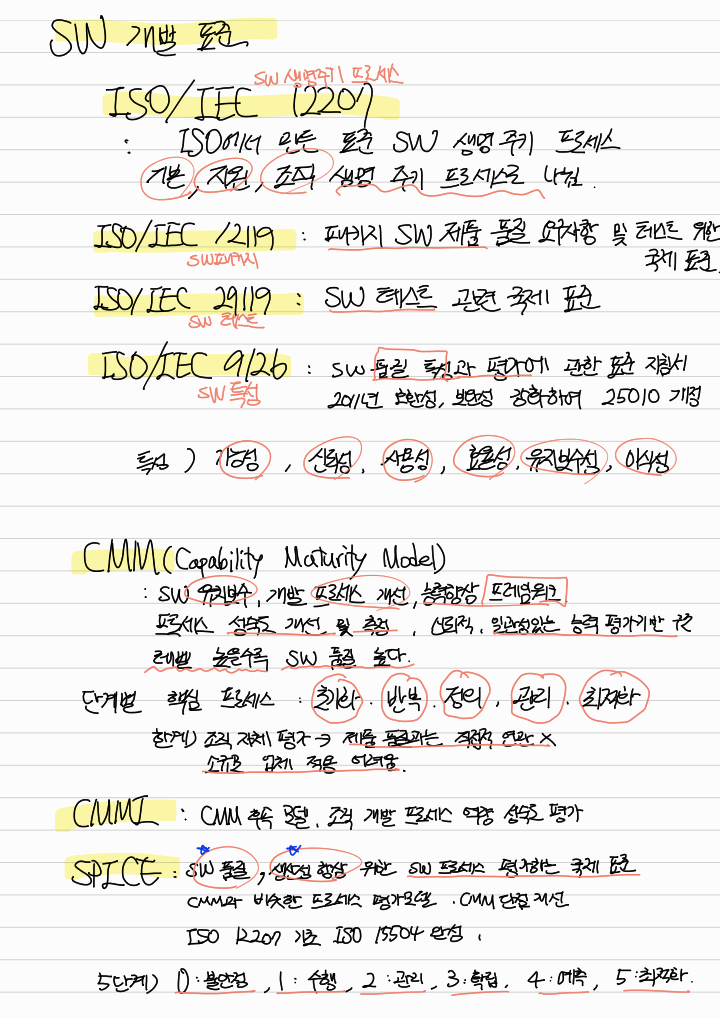 SW 개발 표준
SW 생명주기 프로세스
ISO/IEC 12207
: ISO에서 만든 표준 SW 생명 주기 프로세스
기본, 지원, 조직 생명 주기 프로세스로 나뉨.
ISO/IEC 12119 : 패키지 SW 제품 품질 요구사항 및 테스트 위한
SW패키지
국제 표준.
ISO/IEC 29119 : SW 테스트 관련 국제 표준
SW 테스트
ISO/IEC 9126 : SW 품질 특성과 평가에 관한 표준 지침서
SW 특성
2011년 호환성, 보안성 강화하여 25010 개정
특성 ) 기능성, 신뢰성, 사용성, 효율성, 유지보수성, 이식성
CMM(Capability Maturity Model)
: SW 유지보수, 개발 프로세스 개선, 능력향상 프레임워크
프로세스 성숙도 개선 및 측정, 신뢰적, 일관성있는 능력 평가기반 구축
레벨 높을수록 SW 품질 높다.
단계별 핵심 프로세스 : 초기화. 반복. 정의, 관리. 최적화
한계) 조직 자체 평가 → 제품 품질과는 직접적 연관 X
소규모 업체 적용 어려움.
CMMI : CMM 후속 모델, 조직 개발 프로세스 역량 성숙도 평가
SPICE : SW 품질, 생산성 향상 위한 SW 프로세스 평가하는 국제 표준
CMM과 비슷한 프로세스 평가모델. CMM 단점 개선
ISO 12207 기초 ISO 15504 완성.
5단계) 0:불안정, 1: 수행, 2:관리, 3:확립, 4:예측, 5:최적화.